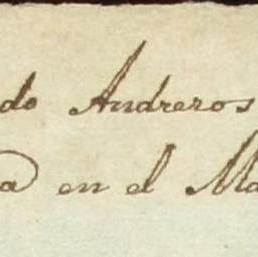 do Andreros
a en el Ma